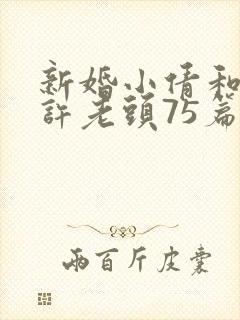 新婚小倩和
許老頭75篇
兩百斤皮囊